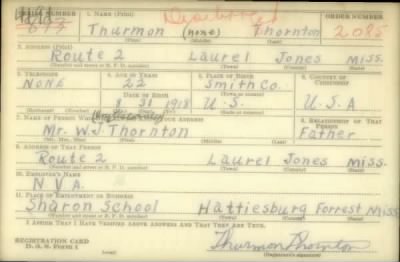 SERIAL NUMBER 1. NAME (Print) Discharged ORDER NUMBER
Thurmon (none) Thornton 2085
(First) (Middle) (Last)
2. ADDRESS (Print)
Route 2 Laurel Jones Miss.
(Number and street or R. F. D. number) (Town) (County) (State)
3. TELEPHONE 4. AGE IN YEARS 5. PLACE OF BIRTH 6. COUNTRY OF CITIZENSHIP
NONE 22 Smith Co.
DATE OF BIRTH (Town or county)
8 31 1918 U.S. U.S.A
(Exchange) (Number) (Mo.) (Day) (Yr.) (State or country)
7. NAME OF PERSON WHO WILL ALWAYS KNOW YOUR ADDRESS 8. RELATIONSHIP OF THAT PERSON
Mr. W.J. Thornton Father
(Mr., Mrs., Miss) (First) (Middle) (Last)
9. ADDRESS OF THAT PERSON
Route 2 Laurel Jones Miss.
(Number and street or R. F. D. number) (Town) (County) (State)
10. EMPLOYER'S NAME
NYA
11. PLACE OF EMPLOYMENT OR BUSINESS
Sharon School Hattiesburg Forrest Miss.
(Number and street or R. F. D. number) (Town) (County) (State)
I AFFIRM THAT I HAVE VERIFIED ABOVE ANSWERS AND THAT THEY ARE TRUE.
REGISTRATION CARD
D. S. S. Form 1 (over) Thurmon Thornton
(Registrant's signature)